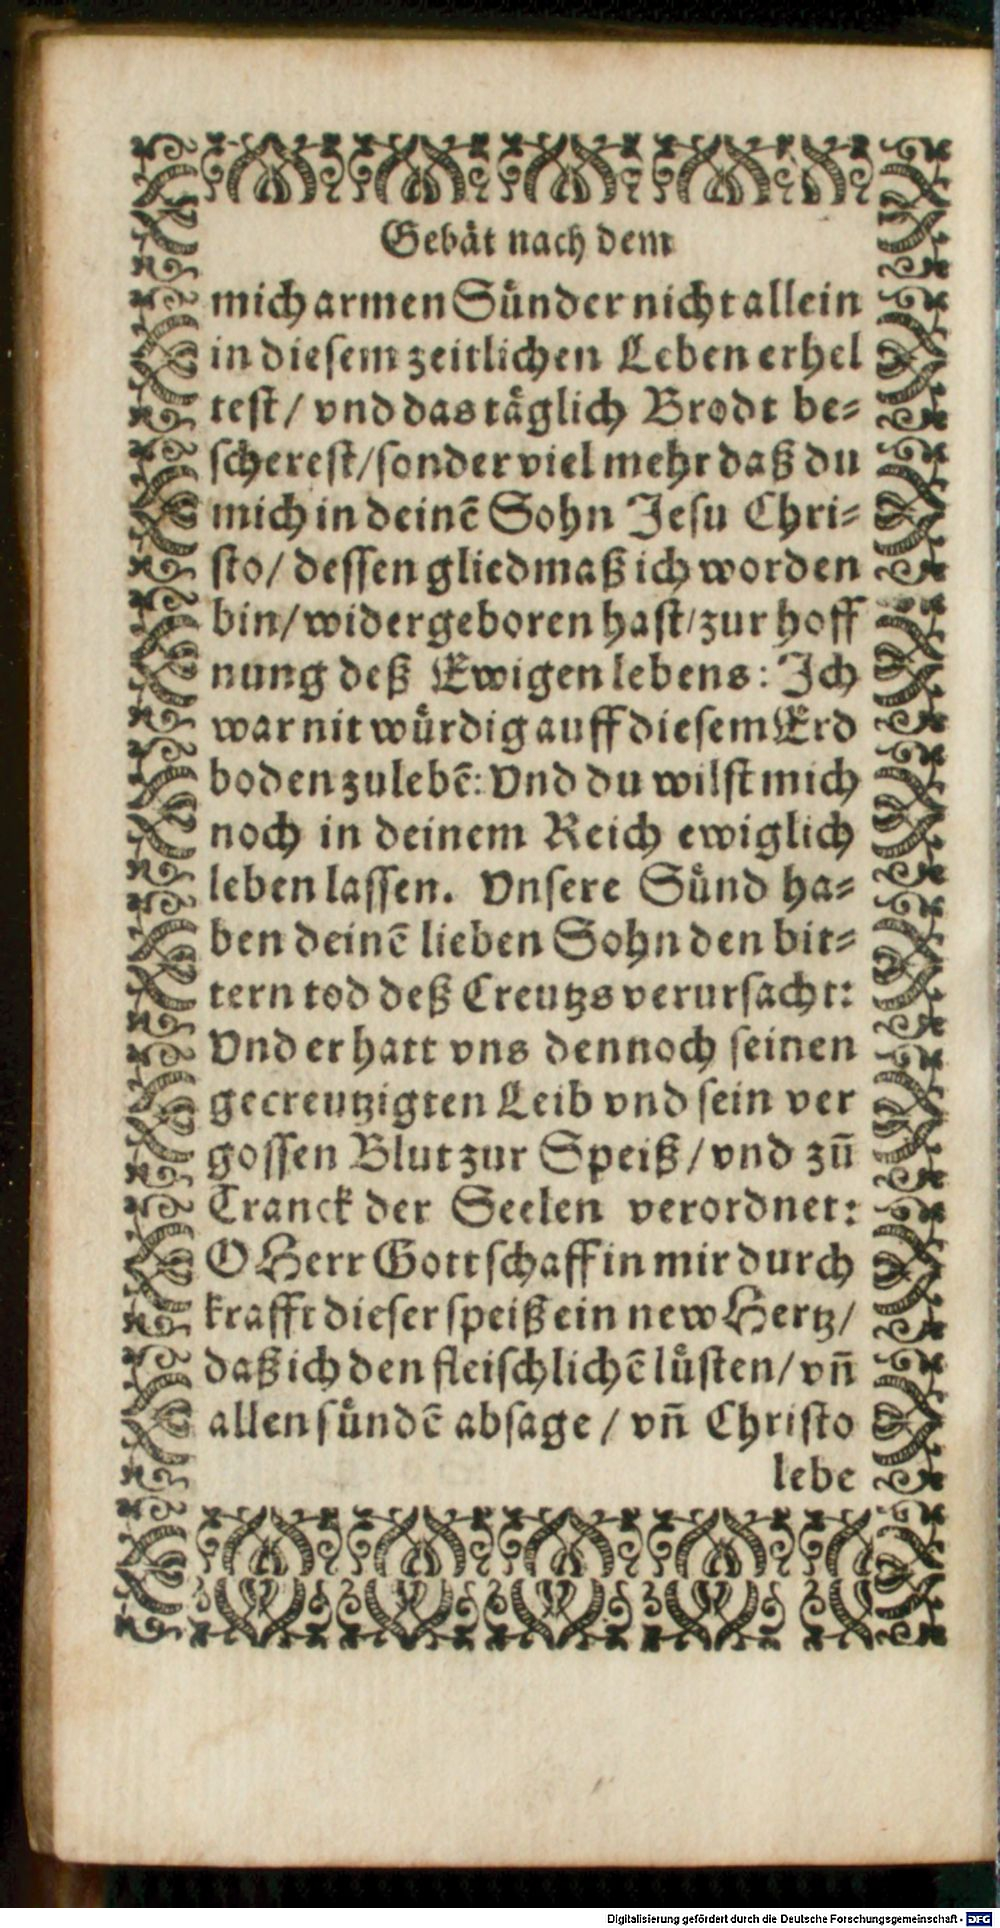 Gebät nach dem
mich armen Sünder nicht allein
in diesem zeitlichen Leben erhel
test / vnd das täglich Brodt be-
scherest / sonder viel mehr daß du
mich in deinē Sohn Jesu Chri-
sto / dessen gliedmaß ich worden
bin / widergeboren hast / zur hoff
nung deß Ewigen lebens: Ich
war nit würdig auff diesem Erd
boden zulebē: Vnd du wilst mich
noch in deinem Reich ewiglich
leben lassen. Vnsere Sünd ha-
ben deinē lieben Sohn den bit-
tern tod deß Creutzs verursacht:
Vnd er hatt vns dennoch seinen
gecreutzigten Leib vnd sein ver
gossen Blut zur Speiß / vnd zū
Tranck der Seelen verordnet:
O Herr Gott schaff in mir durch
krafft dieser speiß ein new Hertz /
daß ich den fleischlichē lüsten / vn̄
allen sündē absage / vn̄ Christo
lebe
Digitalisierung gefördert durch die Deutsche Forschungsgemeinschaft - DFG